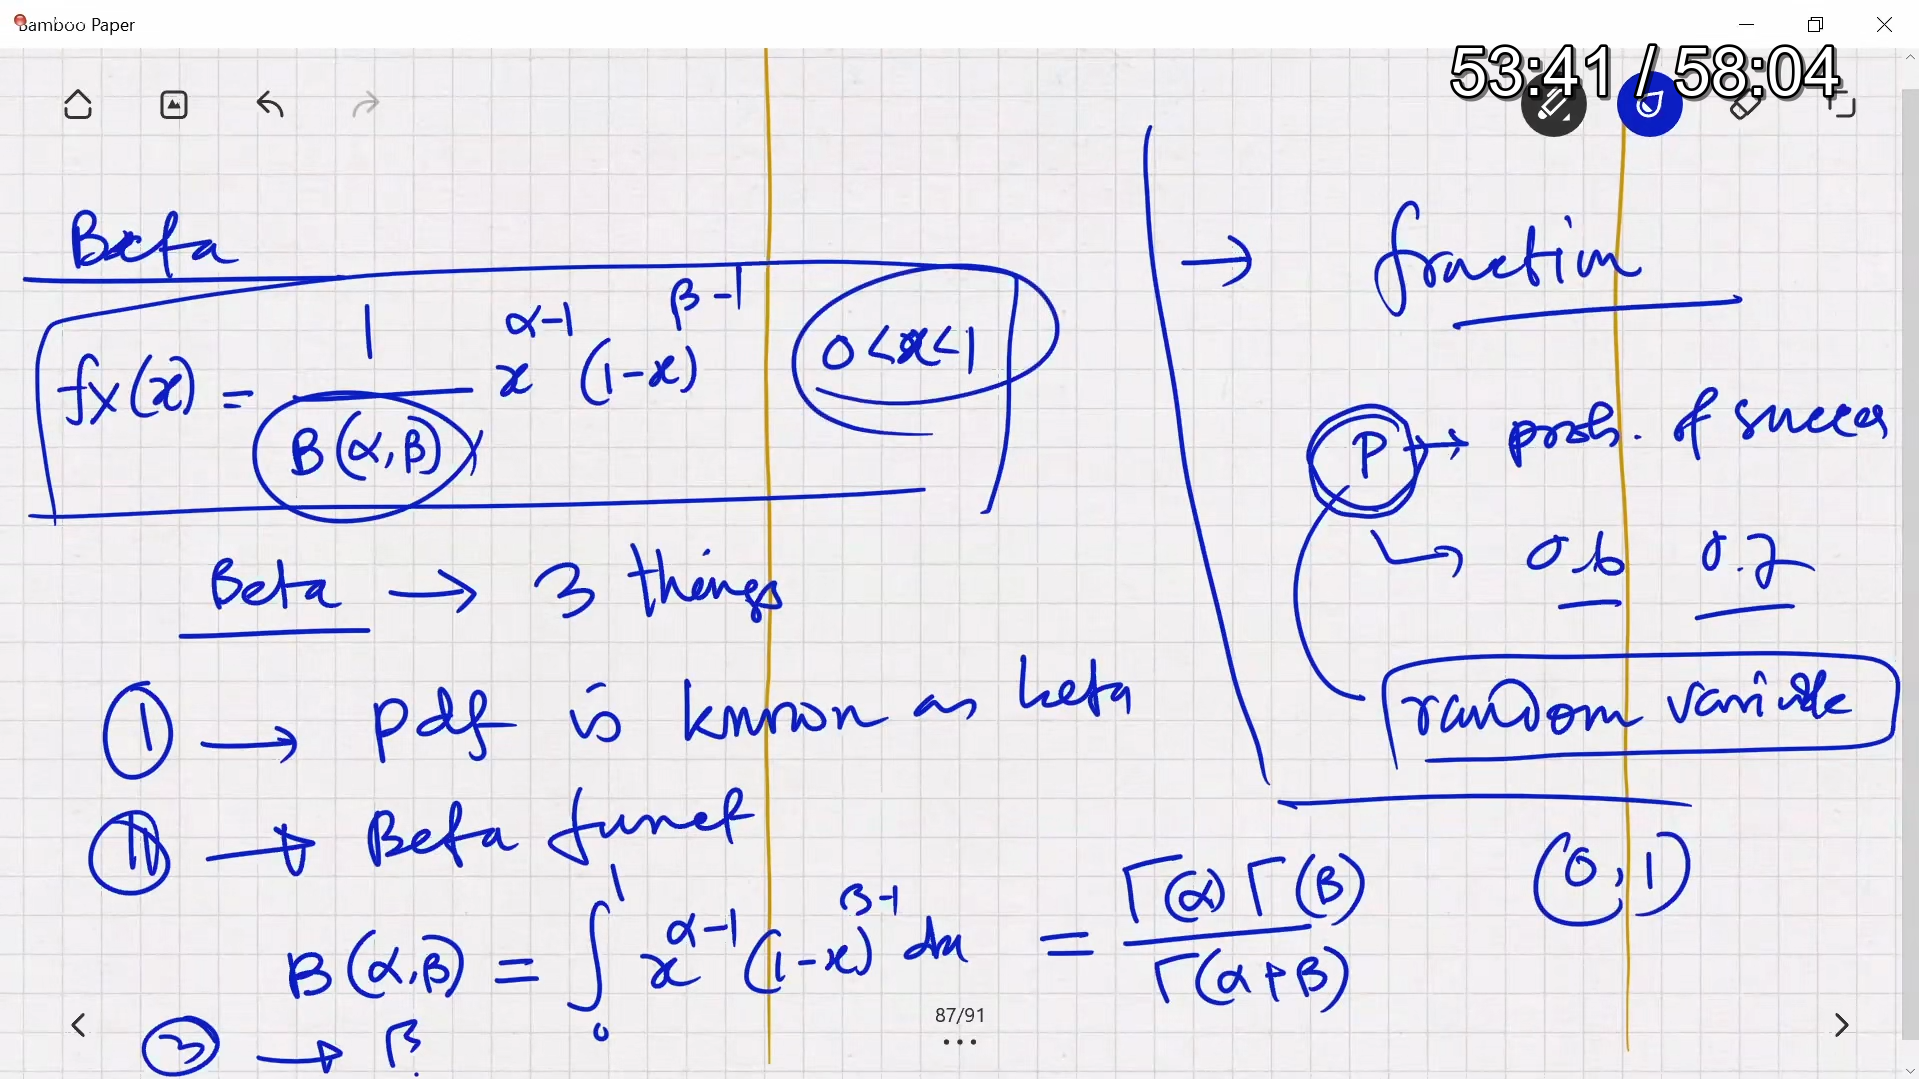 Bamboo Paper
53:41 / 58:04
Beta
fx(x) = 1 / B(α,β) x^(α-1) (1-x)^(β-1) 0<x<1
Beta → 3 things
① → pdf is known as beta
→ Beta funct
B(α,β) = ∫₀¹ x^(α-1) (1-x)^(β-1) dx = Γ(α) Γ(β) / Γ(α+β)
③ → β
→ fraction
P → prob. of success
↳ 0.6 0.7
random variable
(0,1)
87/91